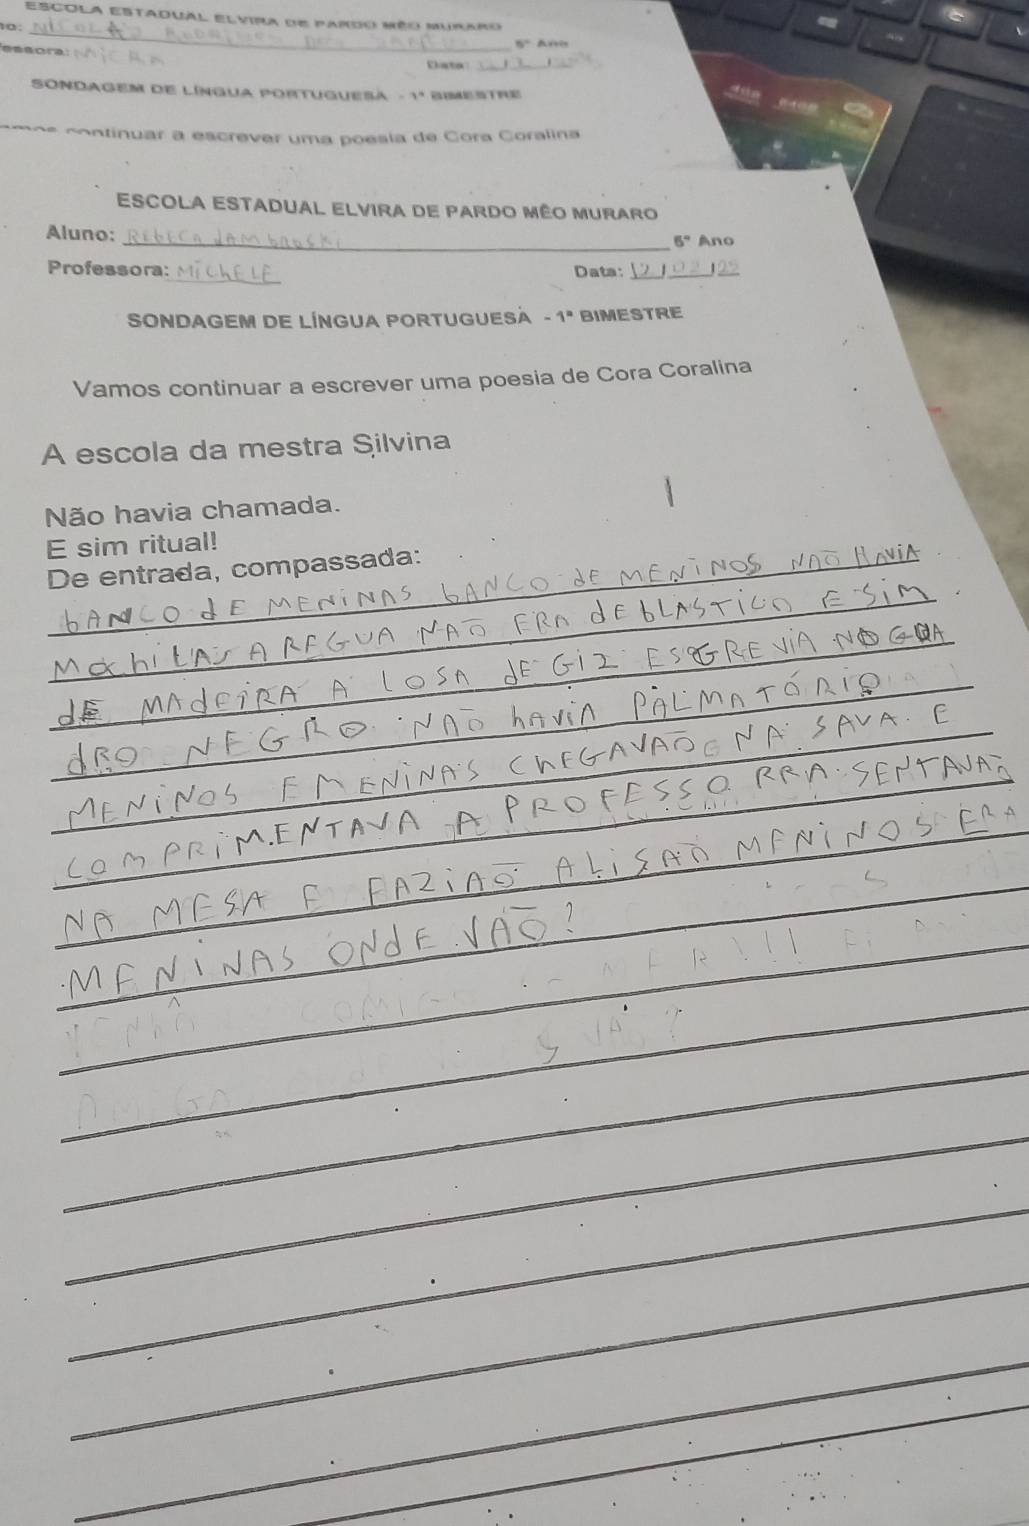 ESCOLA ESTADUAL ELVIRA DE PARDO MÊO MURARO
5° Ano
Data:
SONDAGEM DE LÍNGUA PORTUGUESA - 1ª BIMESTRE
continuar a escrever uma poesia de Cora Coralina
ESCOLA ESTADUAL ELVIRA DE PARDO MÊO MURARO
Aluno: REbECA JAMbROSKi
5° Ano
Professora: MiChELE
Data: 12/02/25
SONDAGEM DE LÍNGUA PORTUGUESA - 1ª BIMESTRE
Vamos continuar a escrever uma poesia de Cora Coralina
A escola da mestra Silvina
Não havia chamada.
E sim ritual!
De entrada, compassada:
bANCO dE MENiNAS bANCO dE MENiNOS NAÕ HAViA
MOchiLAS A REGUA NAÕ ERA dE bLASTiCO E SiM
dE MAdEiRA A LOSA dE GiZ ESGREViA NO GUA
dRO NEGRO NAÕ hAViA PALMATÓRiO
MENiNOS E MENiNAS ChEGAVAÕ NA SAVA E
COMPRiMENTAVA A PROFESSO RRA SENTAVAÕ
NA MESA E FAZiAÕ ALiSAÕ MENiNOS ERA
MENiNAS ONdE VAÕ?